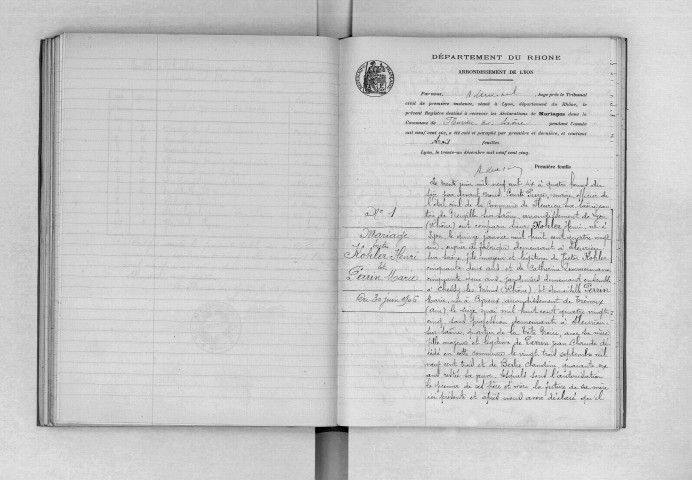 DÉPARTEMENT DU RHONE
ARRONDISSEMENT DE LYON
Par nous, Juge près le Tribunal
civil de première instance, séant à Lyon, département du Rhône, le
présent Registre destiné à recevoir les déclarations de Mariages dans la
Commune de Fleurieu sur Saône pendant l'année
mil neuf cent six, a été coté et paraphé par première et dernière, et contient
trois feuillets
Lyon, le trente-un décembre mil neuf cent cinq.
Première feuille
No 1
Mariage
entre
Kohler Henri
et
Perrin Marie
Du 30 juin 1906
Le trente juin mil neuf cent six à quatre heures du
soir par devant nous Pierre, maire officier de
l'état civil de la commune de Fleurieu sur Saône can
ton de Neuville sur Saône, arrondissement de Lyon
(Rhône) ont comparu sieur Kohler Henri, né à
Lyon le quinze janvier mil huit cent quatre vingt
demeurant à Fleurieu
sur Saône fils majeur et légitime de Victor Kohler
cinquante deux ans et de Catherine Zimmermann
cinquante deux ans, jardiniers demeurant ensemble
à (Rhône). Et demoiselle Perrin
Marie, née à arrondissement de Trévoux
(Ain) le mai mil huit cent quatre vingt
cinq, sans profession demeurant à Fleurieu
sur Saône, quartier de la avec sa mère
fille majeure et légitime de Perrin Jean Claude dé
cédé en cette commune le vingt trois septembre mil
neuf cent trois et de Claudine quarante six
ans Lesquels sous l'autorisation
le premier de ses père et mère la future de sa mère
ici présente et après nous avoir déclaré qu'il